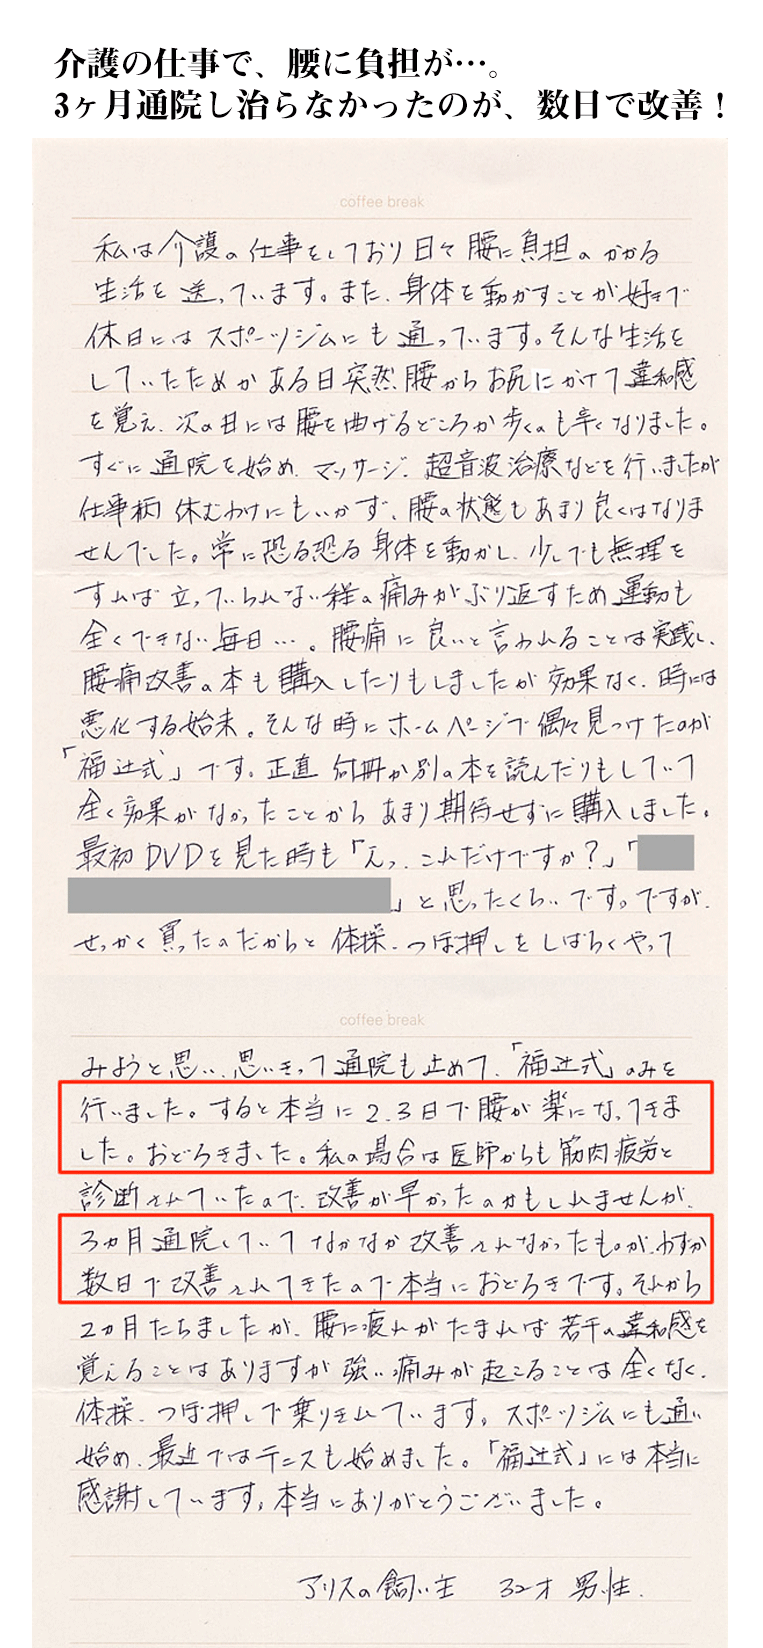 介護の仕事で、腰に負担が…。
3ヶ月通院し治らなかったのが、数日で改善！
coffee break
私は介護の仕事をしており日々腰に負担のかかる
生活を送っています。また、身体を動かすことが好きで
休日にはスポーツジムにも通っています。そんな生活を
していたためかある日突然腰からお尻にかけて違和感
を覚え、次の日には腰を曲げるどころか歩くのも辛くなりました。
すぐに通院を始め、マッサージ、超音波治療などを行いましたが
仕事柄休むわけにもいかず、腰の状態もあまり良くはなりま
せんでした。常に恐る恐る身体を動かし、少しでも無理を
すれば立っていられない程の痛みがぶり返すため運動も
全くできない毎日…。腰痛に良いと言われることは実践し、
腰痛改善の本も購入したりもしましたが効果なく、時には
悪化する始末。そんな時にホームページで偶々見つけたのが
「福辻式」です。正直何冊か別の本を読んだりもしていて
全く効果がなかったことからあまり期待せずに購入しました。
最初DVDを見た時も「えっ、これだけですか？」「
」と思ったくらいです。ですが、
せっかく買ったのだからと体操、つぼ押しをしばらくやって
coffee break
みようと思い、思いきって通院も止めて、「福辻式」のみを
行いました。すると本当に2、3日で腰が楽になってきま
した。おどろきました。私の場合は医師からも筋肉疲労と
診断されていたので、改善が早かったのかもしれませんが、
3カ月通院していてなかなか改善されなかったものが、わずか
数日で改善されてきたので本当におどろきです。それから
2カ月たちましたが、腰に疲れがたまれば若干の違和感を
覚えることはありますが強い痛みが起こることは全くなく、
体操、つぼ押しで乗りきれています。スポーツジムにも通い
始め、最近ではテニスも始めました。「福辻式」には本当に
感謝しています。本当にありがとうございました。
アリスの飼い主　32才 男性.